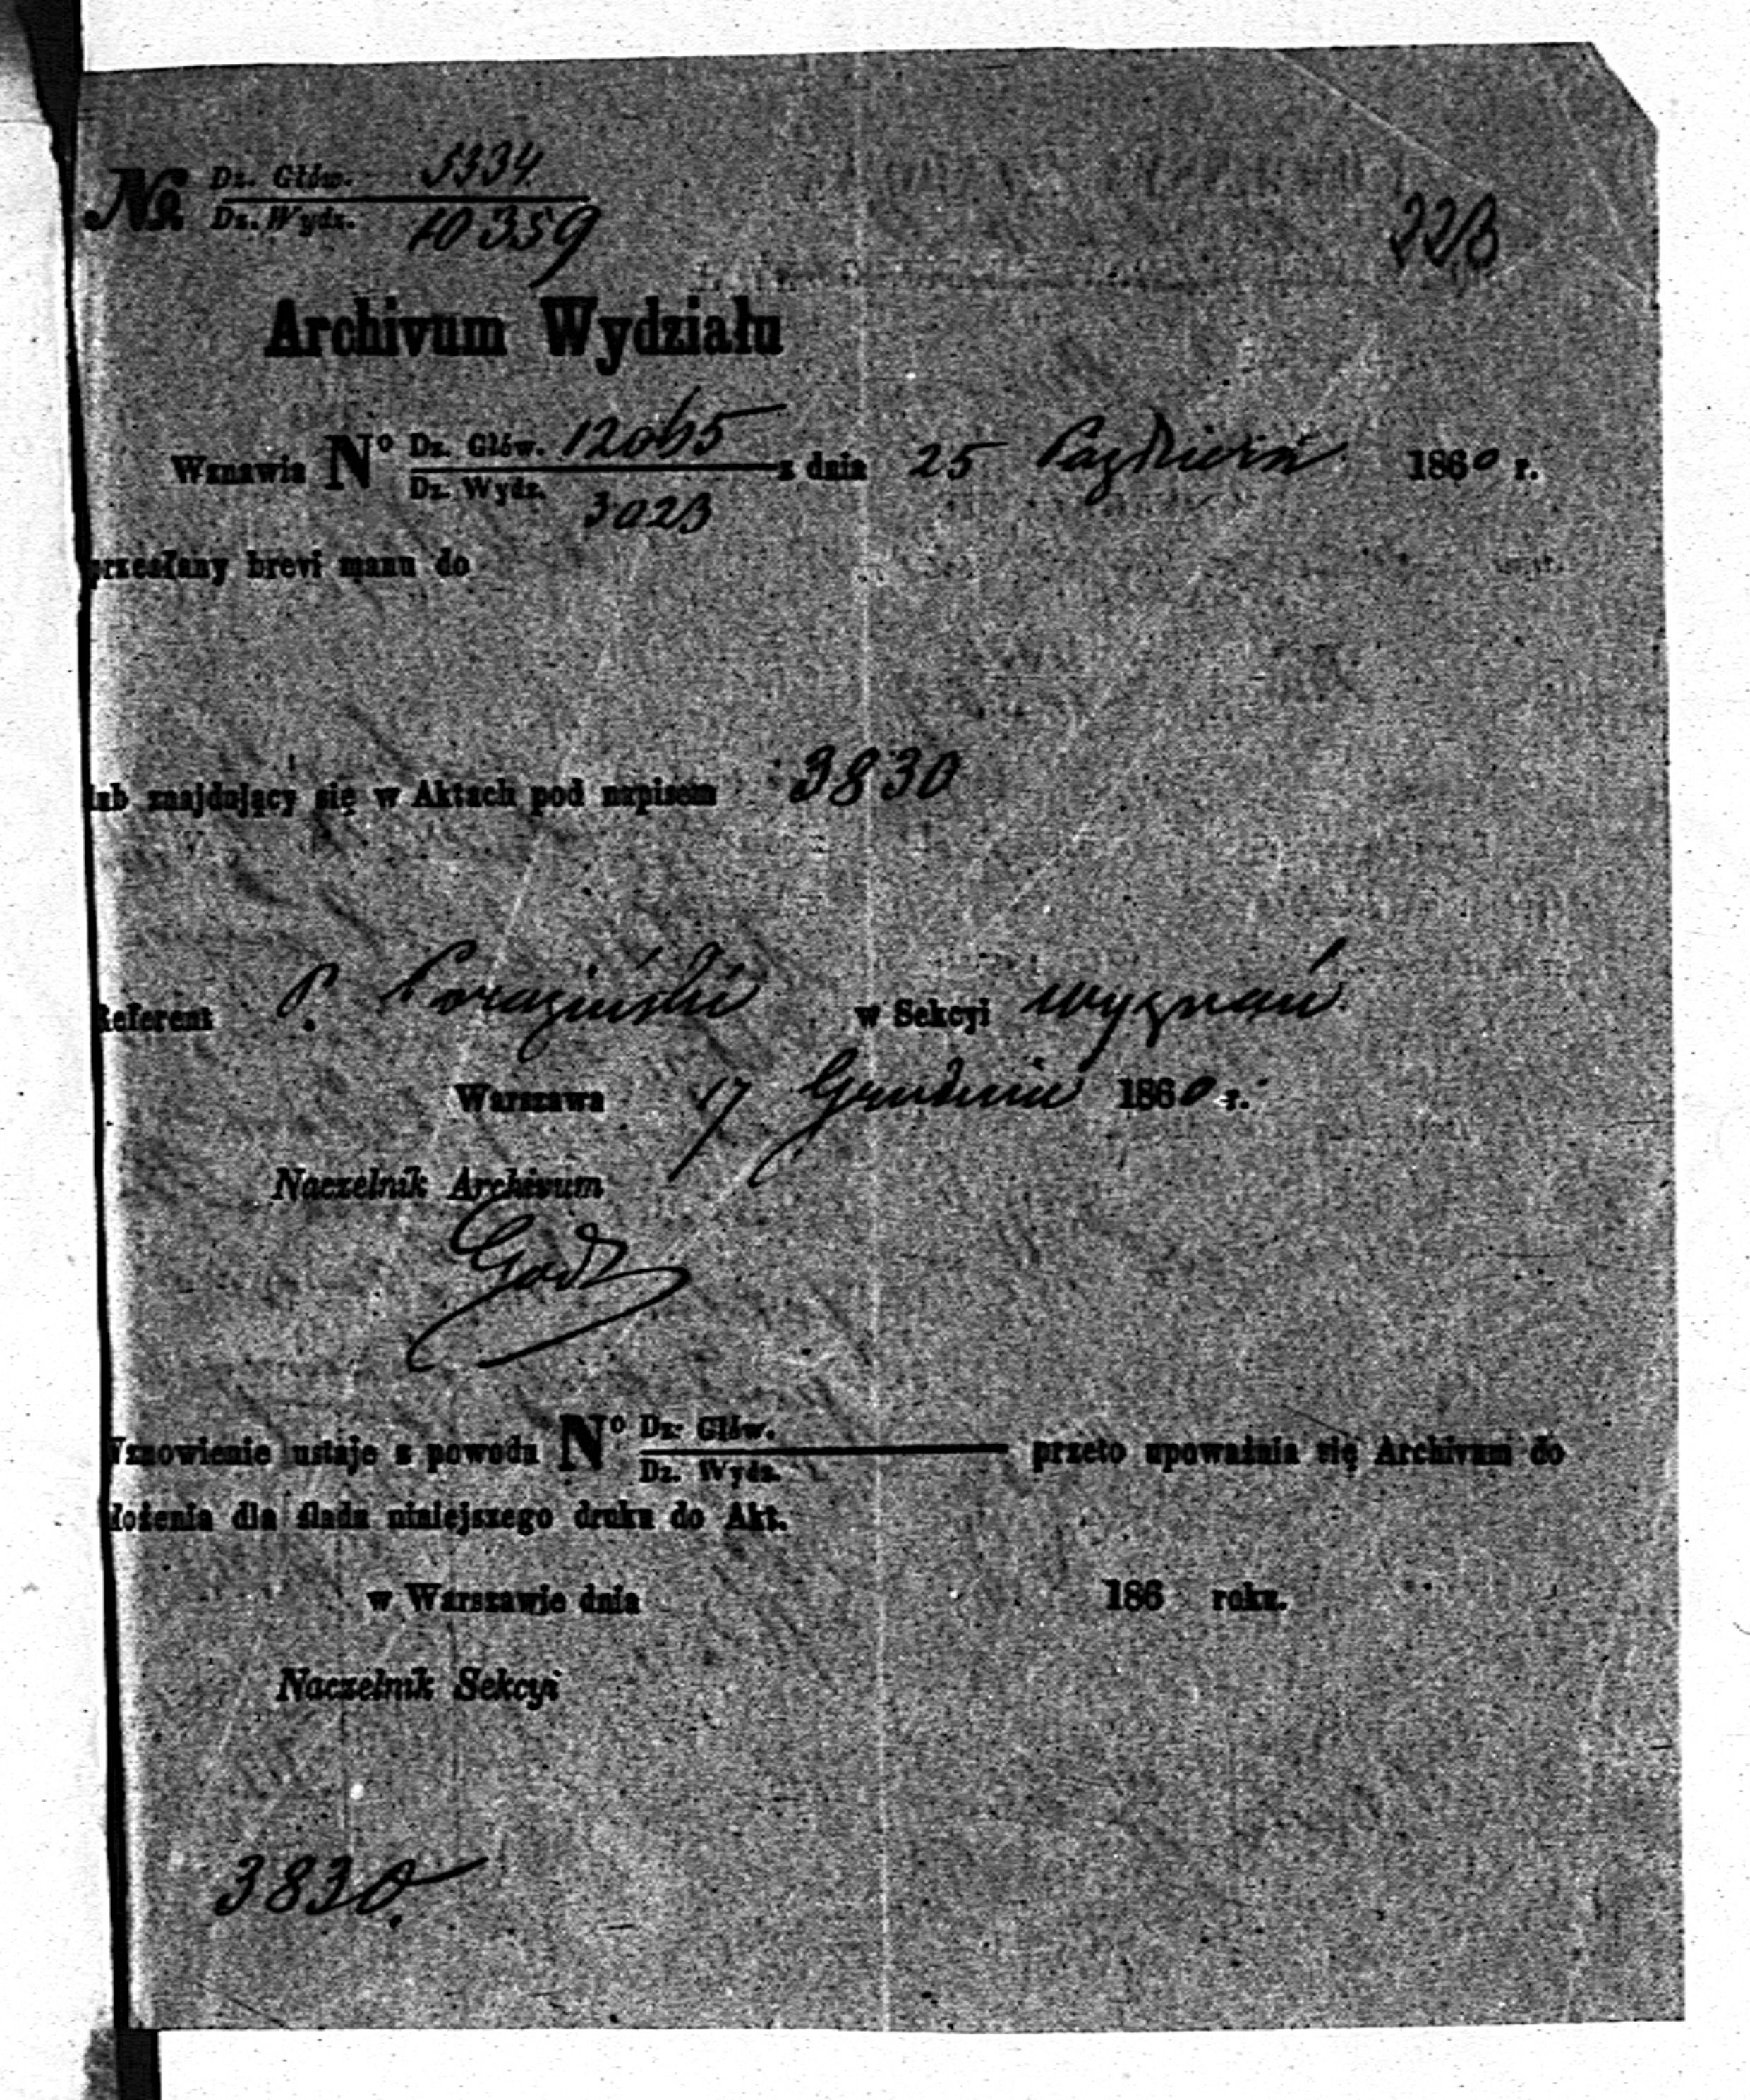 № Dz. Głów. 5334
Dz. Wydz. 10359
228
Archivum Wydziału
Wznawia N° Dz. Głów. 12065 z dnia 25 Październ 1860 r.
Dz. Wydz. 3028
przesłany brevi manu do
lub znajdujący się w Aktach pod napisem 3830
Referent P. w Sekcyi wyznań
Warszawa 17 Grudnia 1860 r.
Naczelnik Archivum
Wznowienie ustaje z powodu N° Dz. Głów. przeto upoważnia się Archivum do
Dz. Wydz.
złożenia dla śladu niniejszego druku do Akt.
w Warszawie dnia 186 roku.
Naczelnik Sekcyi
3830.